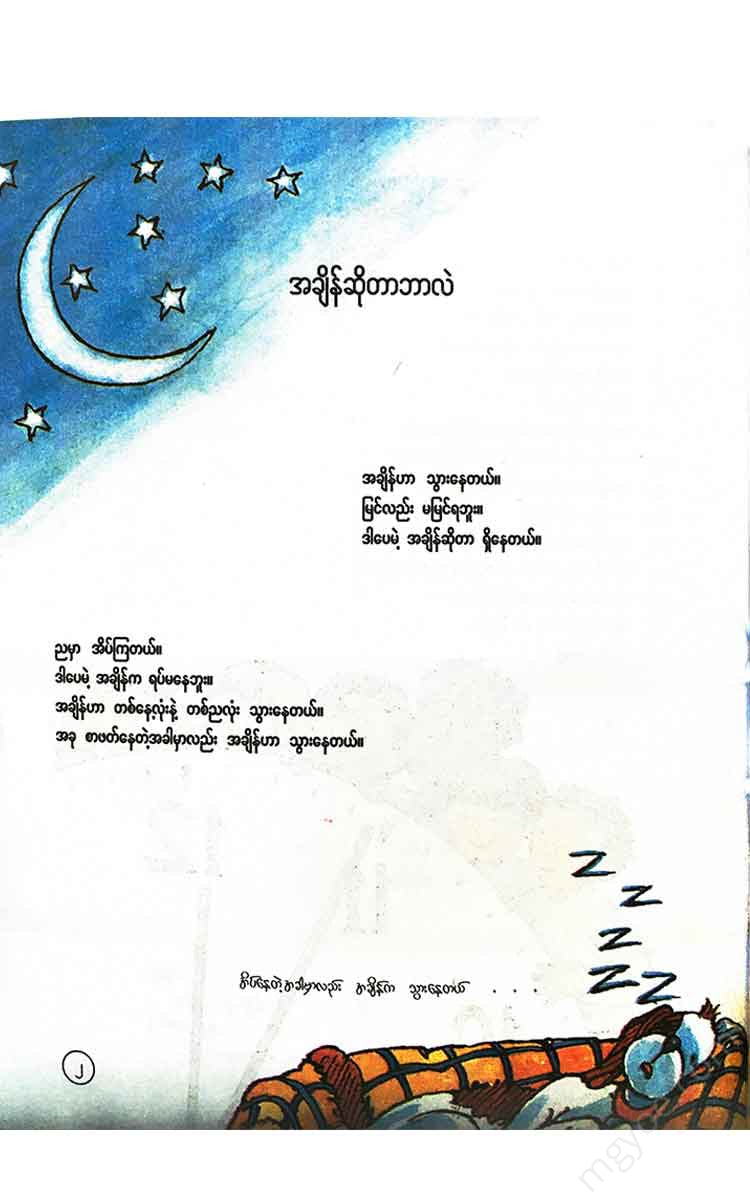 အချိန်ဆိုတာဘာလဲ
အချိန်ဟာ သွားနေတယ်။
မြင်လည်း မမြင်ရဘူး။
ဒါပေမဲ့ အချိန်ဆိုတာ ရှိနေတယ်။
ညမှာ အိပ်ကြတယ်။
ဒါပေမဲ့ အချိန်က ရပ်မနေဘူး။
အချိန်ဟာ တစ်နေ့လုံးနဲ့ တစ်ညလုံး သွားနေတယ်။
အခု စာဖတ်နေတဲ့အခါမှာလည်း အချိန်ဟာ သွားနေတယ်။
Z
Z
Z
Z Z
အိပ်နေတဲ့အခါမှာလည်း အချိန်က သွားနေတယ် . . .
၂